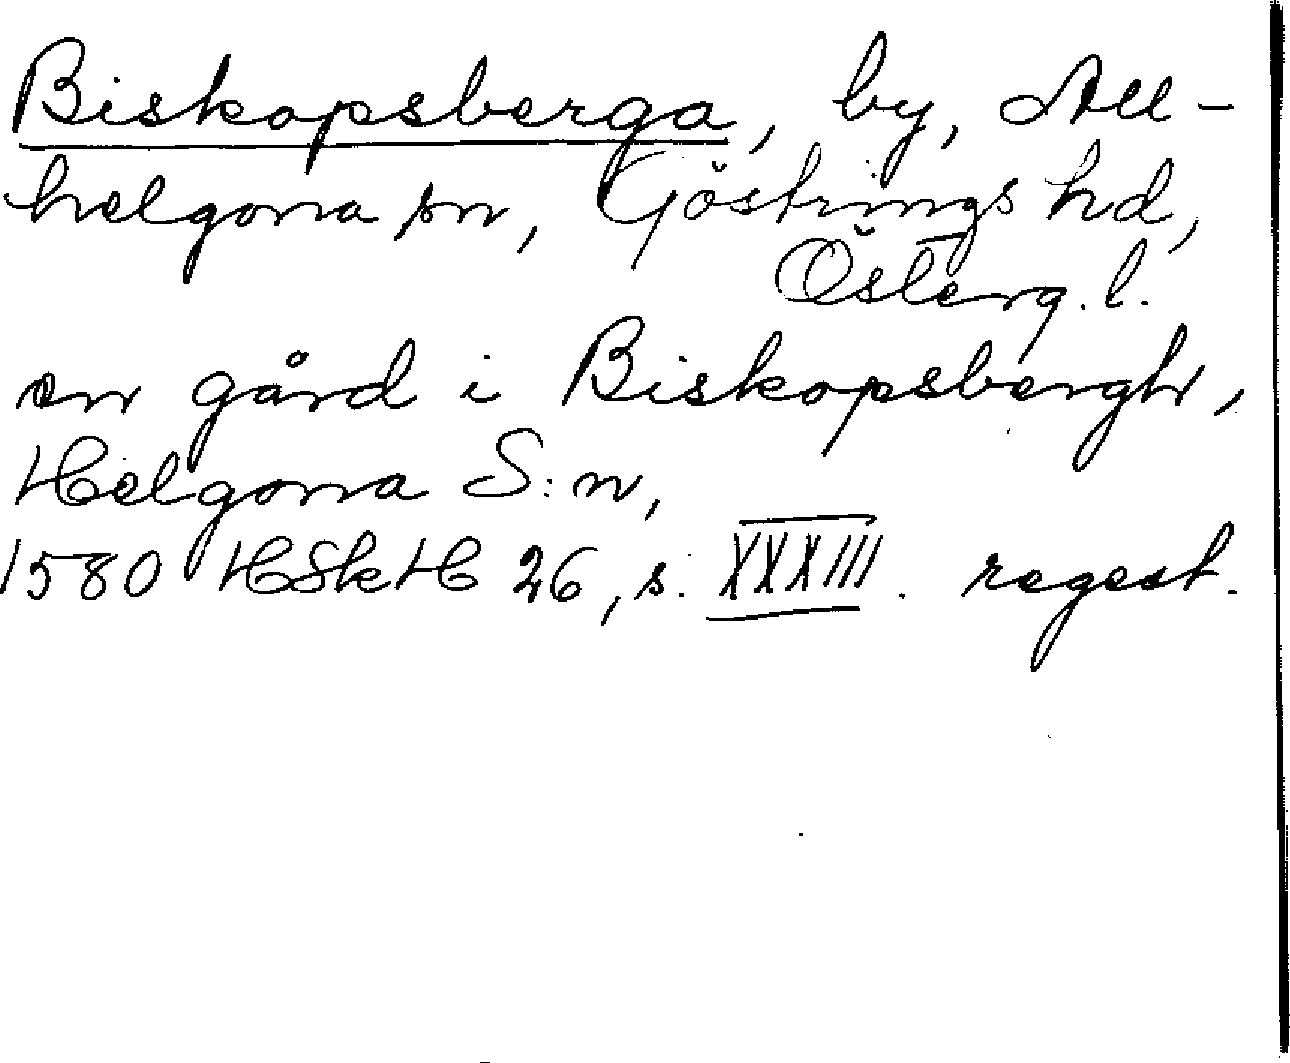 Biskopsberga, by, All-
helgona sn, Göstrings hd,
Österg. l.
en gård i Biskopsbergh,
Helgona S:n,
1580 HSkH 26, s. XXXIII. regest.